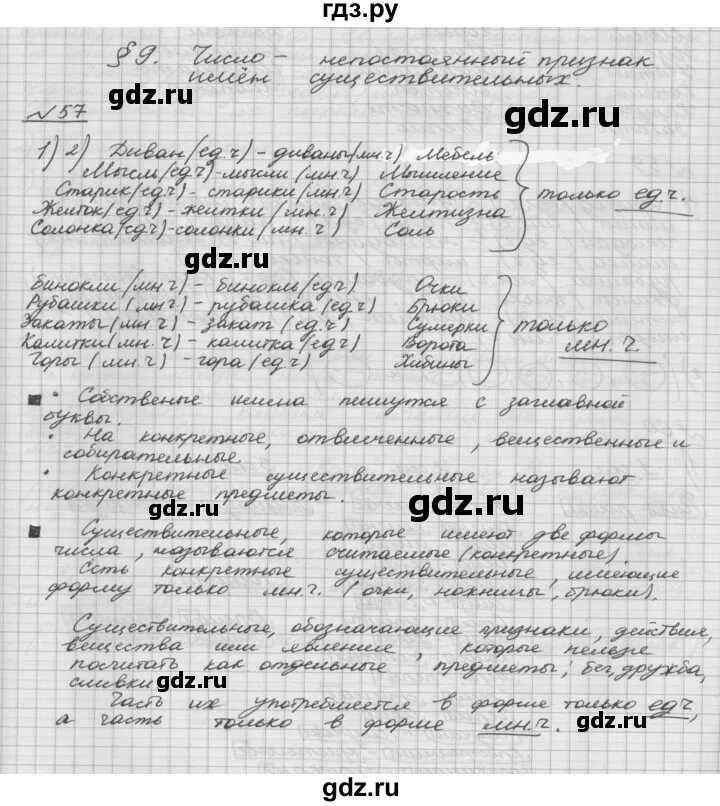 гдз.ру
§ 9. Число – непостоянный признак
имён существительных.
gdz.ru gdz.ru
№ 57
1) 2) Диван (ед.ч) - диваны (мн.ч) Мебель
Мысль (ед.ч) - мысли (мн.ч) Мышление
Старик (ед.ч) - старики (мн.ч) Старость только ед.ч.
Желток (ед.ч) - желтки (мн.ч) Желтизна
Солонка (ед.ч) - солонки (мн.ч) Соль
gdz.ru gdz.ru
Бинокли (мн.ч) - бинокль (ед.ч) Очки
Рубашки (мн.ч) - рубашка (ед.ч) Брюки
Закаты (мн.ч) - закат (ед.ч) Сумерки только
Калитки (мн.ч) - калитка (ед.ч) Ворота мн.ч.
Горы (мн.ч) - гора (ед.ч) Хибины
gdz.ru
• Собственые имена пишутся с заглавной
буквы.
• На конкретные, отвлеченные, вещественные и
собирательные.
• Конкретные существительные называют
конкретные предметы.
gdz.ru gdz.ru
Существительные, которые имеют две формы
числа, называются считаемые (конкретные).
Есть конкретные существительные, имеющие
форму только мн.ч. (очки, брюки).
Существительные, обозначающие признаки, действия,
вещества или явление, которые нельзя
посчитать как отдельные предметы; бег, дружба,
сливки
gdz.ru
Часть их употребляется в форме только ед.ч,
а часть только в форме мн.ч.
gdz.ru gdz.ru
gdz.ru